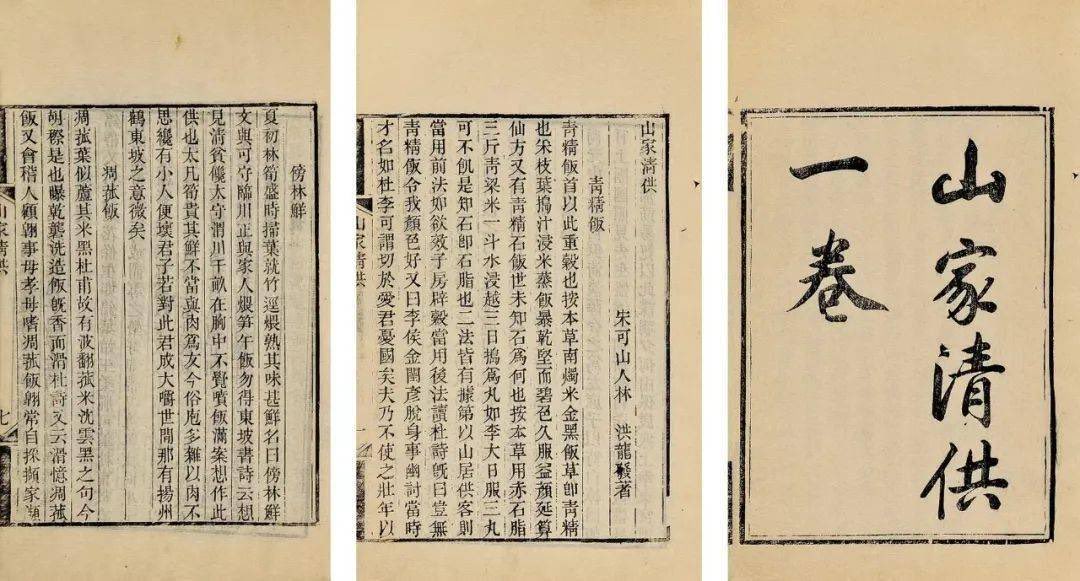 山家清供
一卷
山家清供
宋可山人林 洪龍發著
青精飯
青精飯首以此重穀也按本草南燭米金黑飯草卽青精
也朱枝葉搗汁浸米蒸飯暴乾堅而碧色久服益顔延算
仙方又有青精石飯世未知石爲何也按本草用赤石脂
三斤青粱米一斗水浸越三日搗爲丸如李大日服三丸
可不飢是知石卽石脂也二法皆有據第以山居供客則
當用前法如欲效子房辟穀當用後法讀杜詩旣曰豈無
青精飯令我顔色好又曰李侯金閨彥脫身事幽討當時
才名如杜李可謂切於愛君憂國矣夫乃不使之壯年以
山家清供
一
傍林鮮
夏初林筍盛時掃葉就竹逕煨熟其味甚鮮名曰傍林鮮
文與可守臨川正與家人煨笋午飯勿得東坡書詩云想
見清貧饞太守渭川千畝在胸中不覺噴飯滿案想作此
供也太凡筍貴其鮮不當與肉爲友今俗庖多雜以肉不
思纔有小人便壞君子若對此君成大嚼世間那有揚州
鶴東坡之意微矣
凋菰飯
凋菰葉似蘆其米黑杜甫故有波翻菰米沈雲黑之句今
胡穄是也曝乾礱洗造飯旣香而滑杜詩又云滑憶凋菰
飯又會稽人顧翶事母孝母嗜凋菰飯翶常自採擷家瀕
山家清供
七